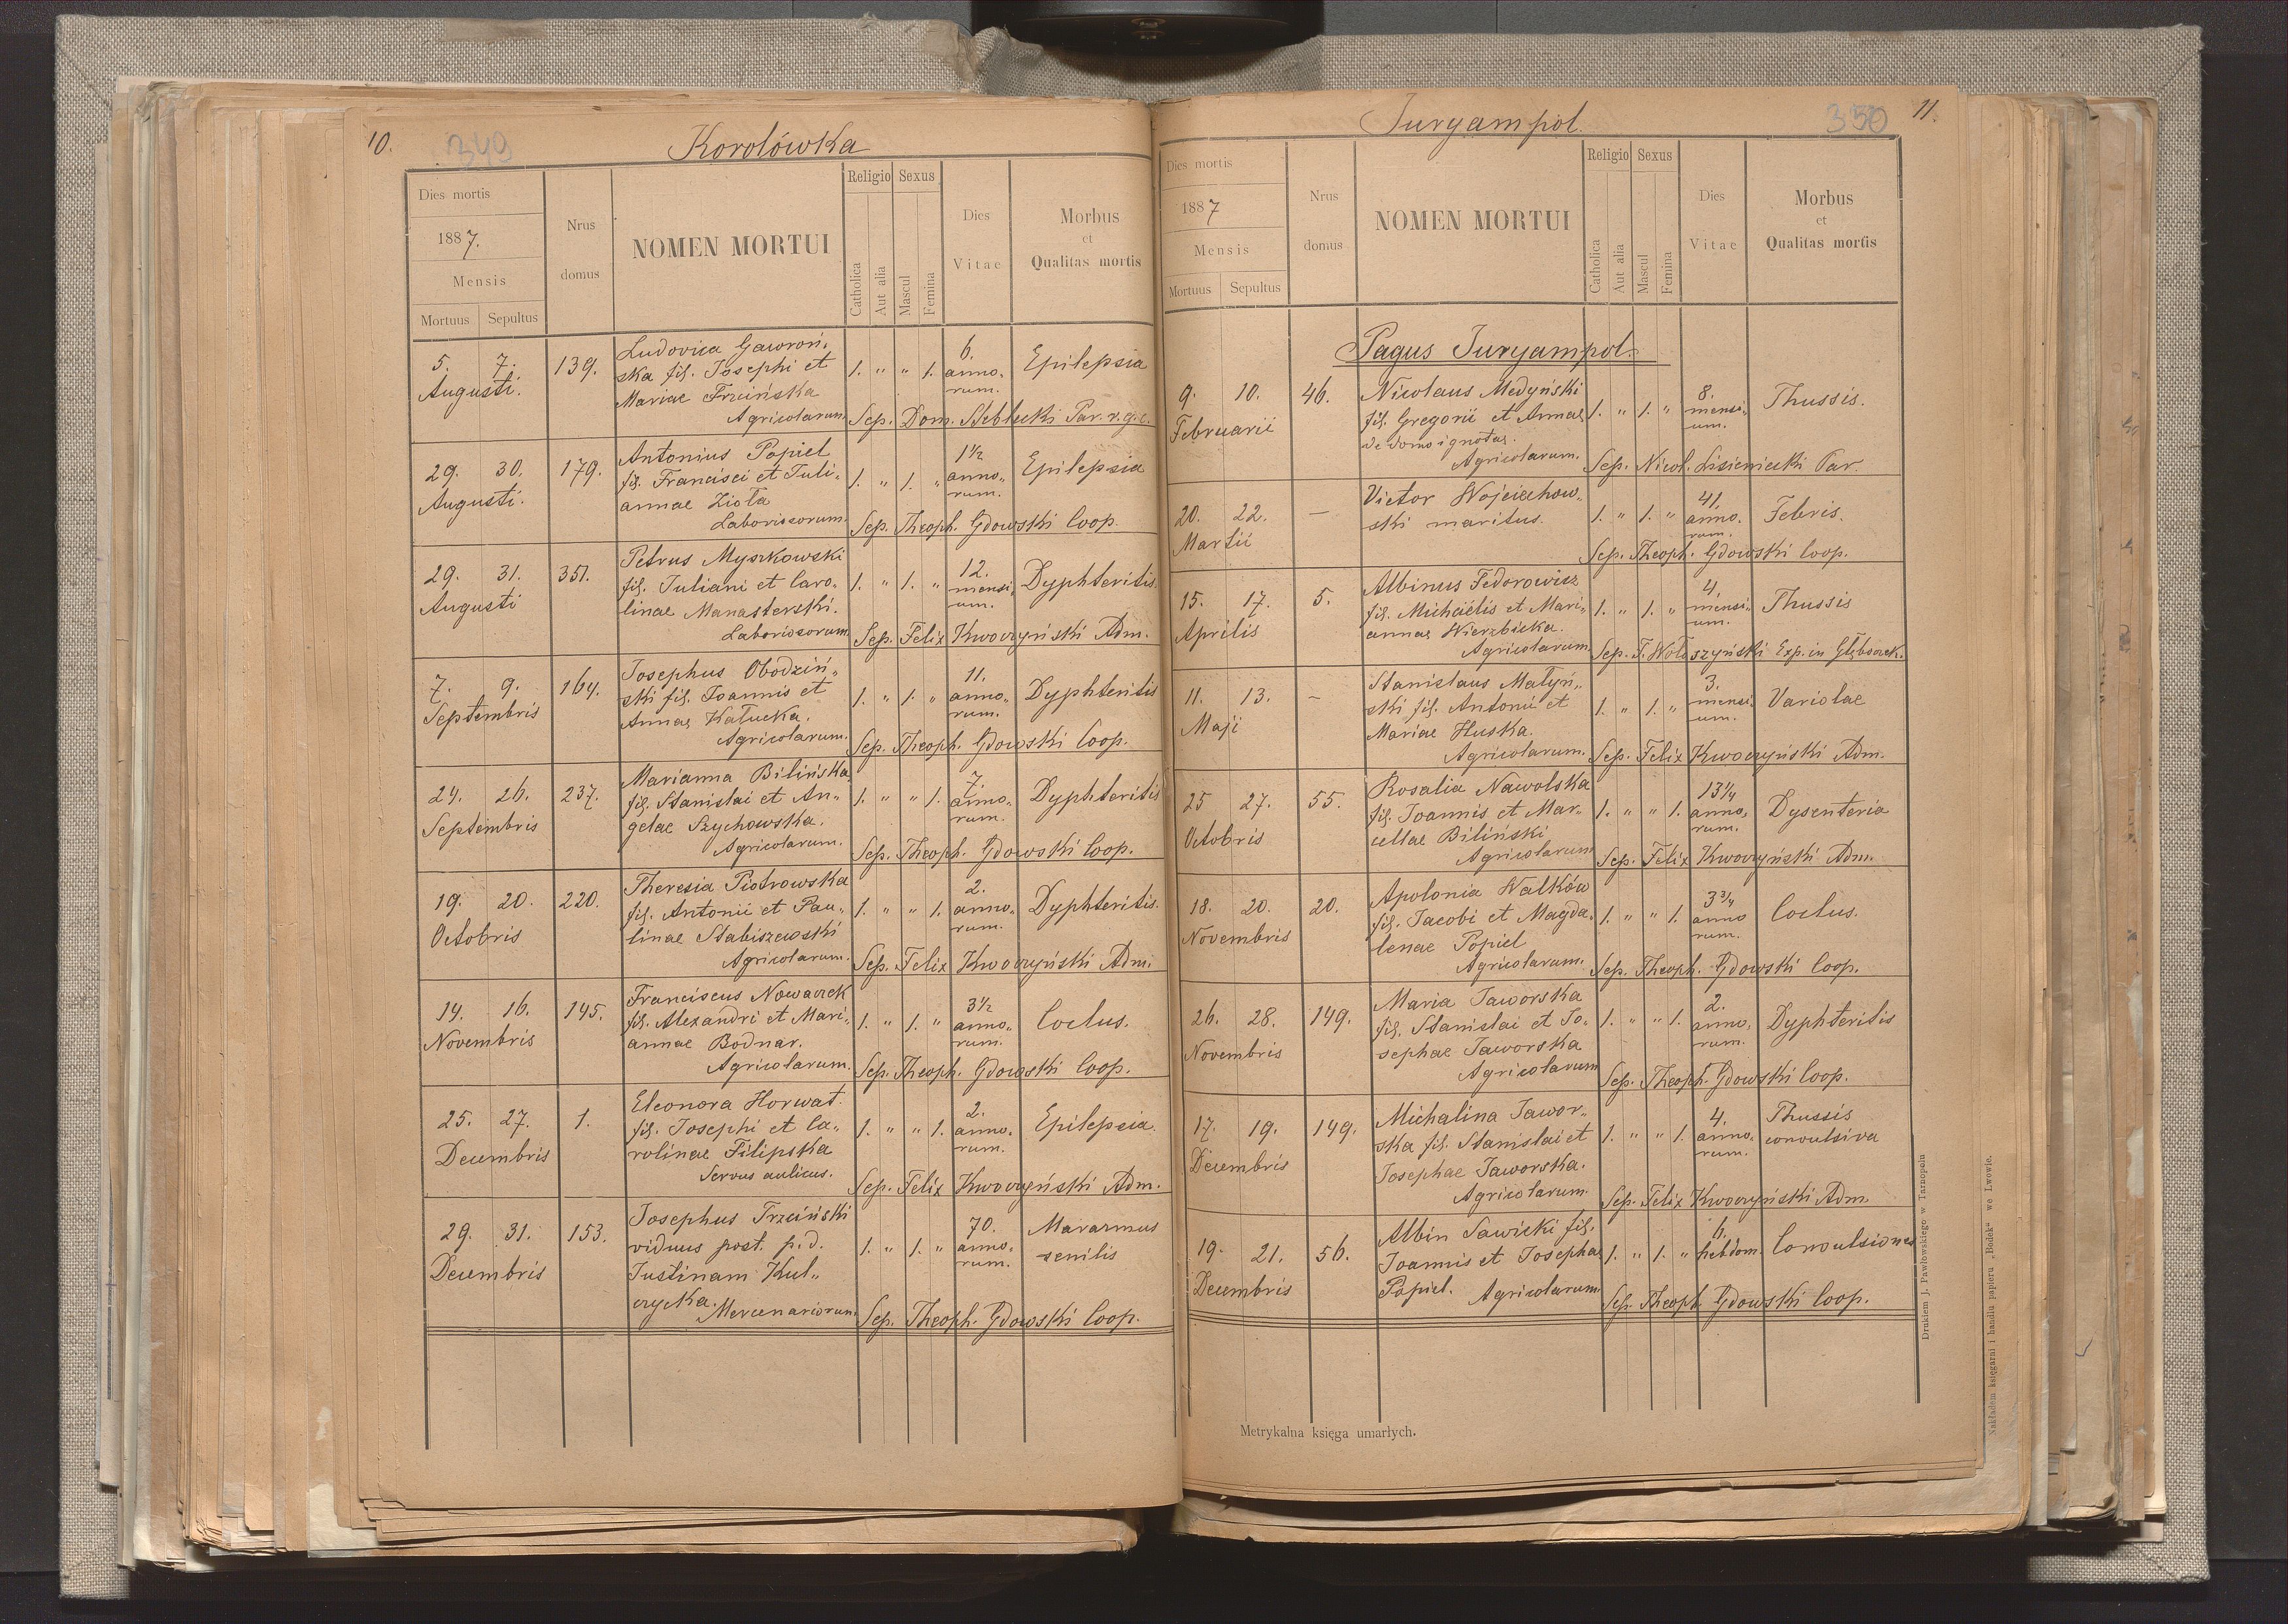 10.
349
Korolówka
Dies mortis
1887.
Mensis
Mortuus Sepultus
Nrus
domus
NOMEN MORTUI
Religio Sexus
Catholica
Aut alia
Mascul
Femina
Dies
Vitae
Morbus
et
Qualitas mortis
5. 7. 139. Ludovica Gawroń- 6.
Augusti. ska fil. Josephi et 1. " " 1. anno- Epilepsia
Mariae Trzcińska rum.
Agricolarum Sep. Dom. Stebłecki Par. r. g. c.
29. 30. 179. Antonius Popiel 1½
Augusti. fil. Francisci et Juli- 1. " 1. " anno- Epilepsia
annae Zioła rum.
Laboriosorum. Sep. Theoph. Gdowski Coop.
29. 31. 351. Petrus Myszkowski 12.
Augusti fil. Juliani et Caro- 1. " 1. " mensi- Dyphteritis
linae Manasterski. um.
Laboriosorum Sep. Felix Kwoczyński Adm.
7. 9. 164. Josephus Obodziń- 11.
Septembris ski fil. Joannis et 1. " 1. " anno- Dyphteritis
Annae Kałucka. rum.
Agricolarum. Sep. Theoph. Gdowski Coop.
24. 26. 237. Marianna Bilińska 7.
Septembris fil. Stanislai et An- 1. " " 1. anno- Dyphteritis
gelae Szychowska. rum.
Agricolarum. Sep. Theoph. Gdowski Coop.
19. 20. 220. Theresia Piotrowska 2.
Octobris fil. Antonii et Pau- 1. " " 1. anno- Dyphteritis.
linae Stabiszewski rum.
Agricolarum. Sep. Felix Kwoczyński Adm.
14. 16. 145. Franciscus Nowaczek 3½
Novembris fil. Alexandri et Mari- 1. " 1. " anno- Coclus.
annae Bodnar. rum.
Agricolarum. Sep. Theoph. Gdowski Coop.
25. 27. 1. Eleonora Horwat. 2.
Decembris fil. Josephi et Ca- 1. " " 1. anno- Epilepsia.
rolinae Filipska rum.
Servus aulicus. Sep. Felix Kwoczyński Adm.
29. 31. 153. Josephus Trzciński 70. Marazmus
Decembris viduus post. p. d. 1. " 1. " anno- senilis
Justinam Kul- rum.
czycka. Mercenariorum Sep. Theoph. Gdowski Coop.
Juryampol.
350
11.
Dies mortis
1887
Mensis
Mortuus Sepultus
Nrus
domus
NOMEN MORTUI
Religio Sexus
Catholica
Aut alia
Mascul
Femina
Dies
Vitae
Morbus
et
Qualitas mortis
Pagus Juryampol.
9. 10. 46. Nicolaus Medyński 8.
Februarii fil. Gregorii et Annae 1. " 1. " mensi- Thussis.
de domo ignotae. um.
Agricolarum. Sep. Nicol. Lisieniecki Par.
20. 22. — Victor Wojciechow- 41.
Martii ski maritus. 1. " 1. " anno- Febris.
rum.
Sep. Theoph. Gdowski Coop.
15. 17. 5. Albinus Fedorowicz 4.
Aprilis fil. Michaëlis et Mari- 1. " 1. " mensi- Thussis
annae Wierzbicka. um.
Agricolarum Sep. F. Wołoszyński Exp. in Głęboczek.
11. 13. — Stanislaus Matyń- 3.
Maji ski fil. Antonii et 1. " 1. " mensi- Variolae
Mariae Huska. um.
Agricolarum. Sep. Felix Kwoczyński Adm.
25 27. 55. Rosalia Nawolska 13¼
Octobris fil. Joannis et Mar- 1. " " 1. anno- Dysenteria
cellae Biliński rum.
Agricolarum Sep. Felix Kwoczyński Adm.
18. 20. 20. Apolonia Wałków 3¾
Novembris fil. Jacobi et Magda- 1. " " 1. anno Coclus.
lenae Popiel rum.
Agricolarum. Sep. Theoph. Gdowski Coop.
26. 28. 149. Maria Jaworska 2.
Novembris fil. Stanislai et Jo- 1. " " 1. anno- Dyphteritis
sephae Jaworska rum.
Agricolarum Sep. Theoph. Gdowski Coop.
17. 19. 149. Michalina Jawor- 4. Thussis
Decembris ska fil. Stanislai et 1. " " 1. anno- convulsiva
Josephae Jaworska. rum.
Agricolarum Sep. Felix Kwoczyński Adm.
19. 21. 56. Albin Sawicki fil. 6.
Decembris Joannis et Josephae 1. " 1. " hebdom. Convulsiones
Popiel. Agricolarum
Sep. Theoph. Gdowski Coop.
Metrykalna księga umarłych.
Drukiem J. Pawłowskiego w Tarnopolu
Nakładem księgarni i handlu papieru „Bodek" we Lwowie.